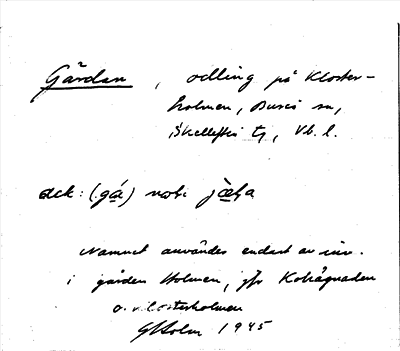 Gärdan, odling på Kloster-
holmen, Bureå sn,
Skellefteå tg, Vb. l.
ack: (gå) nästi jæ̀ḷa
Namnet användes endast av inv.
i gården Holmen, jfr Kolrågnaden
o. Klosterholmen
GHolm 1945